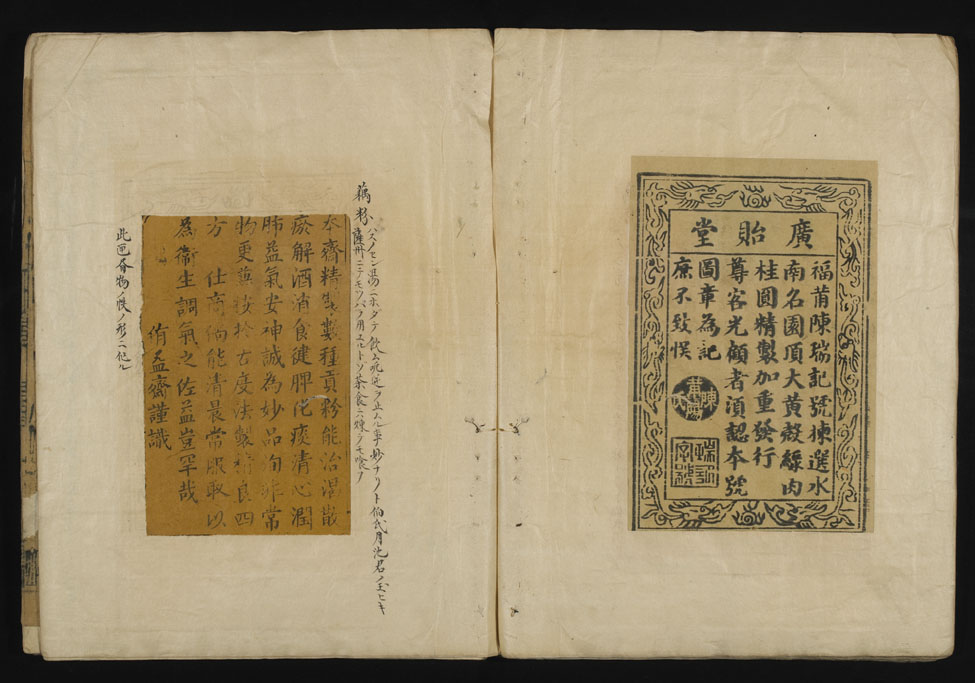 廣貽堂
福莆陳瑞記號揀選水
南名園頂大黃殼綠肉
桂圓精製加重發行
尊客光顧者湏認本號
圖章為記
庶不致悞
瑞記
字號
藕粉
ハスノセン湯ニホダテ飲ム瀉ヲ止ムル事妙ナリト伯氏月池君ノ玉ヒキ
薩州ニテモツハラ用ユルトゾ茶食ニ煉テモ喰フ
本齋精製藪種貢粉能治濕散
瘀解酒消食健脾化痰清心潤
肺益氣安神誠為妙品洵非常
物更兼授於古度法製精良四
方仕商倘能清晨常服取以
為衞生調氣之佐益豈罕哉
侑益齋謹識
此匣唇物ノ帙ノ形ニ化ル